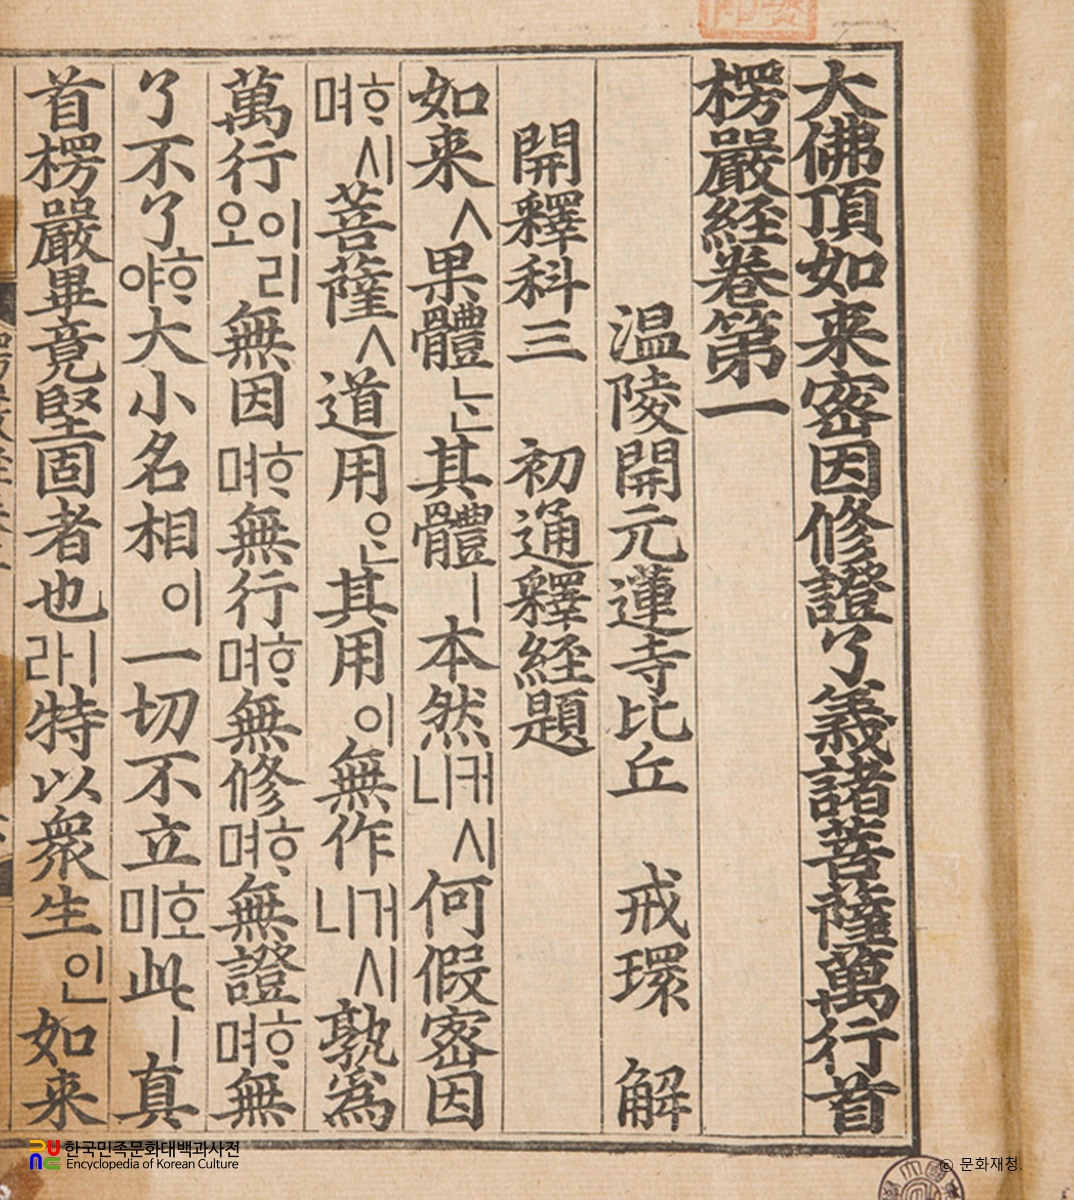 大佛頂如来密因修證了義諸菩薩萬行首
楞嚴経卷第一
温陵開元蓮寺比丘 戒環 解
開釋科三 初通釋経題
如来ㅅ果體ᄂᆞᆫ其體ㅣ本然커시니何假密因
ᄒᆞ시며菩薩ㅅ道用ᄋᆞᆫ其用이無作거시니孰為
萬行이리오無因ᄒᆞ며無行ᄒᆞ며無修ᄒᆞ며無證ᄒᆞ며無
了不了ᄒᆞ야大小名相이一切不立호미此ㅣ真
首楞嚴畢竟堅固者也ㅣ라特以衆生인如来
한국민족문화대백과사전
Encyclopedia of Korean Culture
© 문화재청.